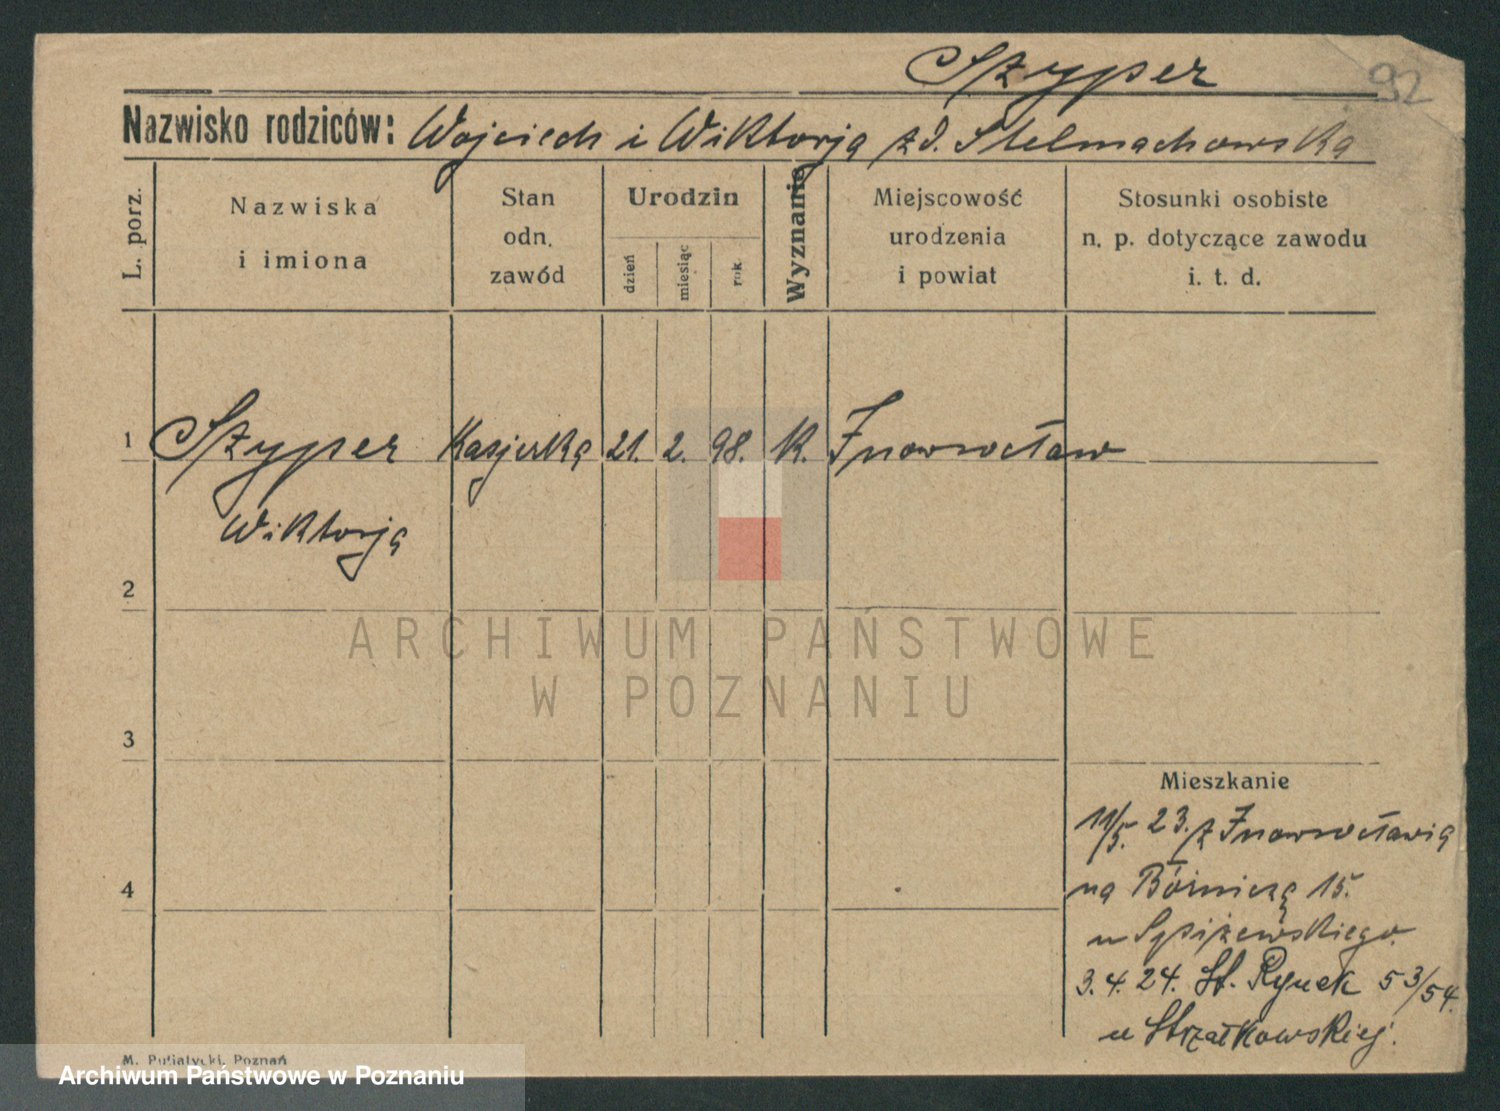 Szyper
92
Nazwisko rodziców: Wojciech i Wiktorja zd. Stelmachowska
L. porz.
Nazwiska
i imiona
Stan
odn.
zawód
Urodzin
dzień
miesiąc
rok
Wyznanie
Miejscowość
urodzenia
i powiat
Stosunki osobiste
n. p. dotyczące zawodu
i. t. d.
1 Szyper Kasjerka 21. 2. 98. K. Inowrocław
Wiktorja
2
ARCHIWUM PAŃSTWOWE
W POZNANIU
3
Mieszkanie
11/5. 23. z Inowrocławia
4
na Bóźniczą 15.
u
3. 4. 24. St. Rynek 53/54.
u Strzałkowskiej.
M. Putiatycki, Poznań
Archiwum Państwowe w Poznaniu